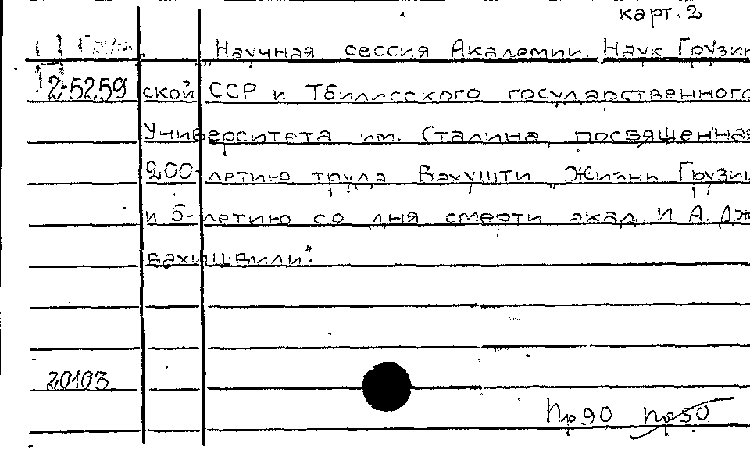 карт. 2
Научная сессия Академии Наук Грузин
2-5259 ской ССР и Тбилисского государственного
Университета им. Сталина, посвященная
200-летию труда Вахушти „Жизнь Грузии
и 5-летию со дня смерти акад. И. А. Дж
вахишвили."
20103
Пр90 пр50